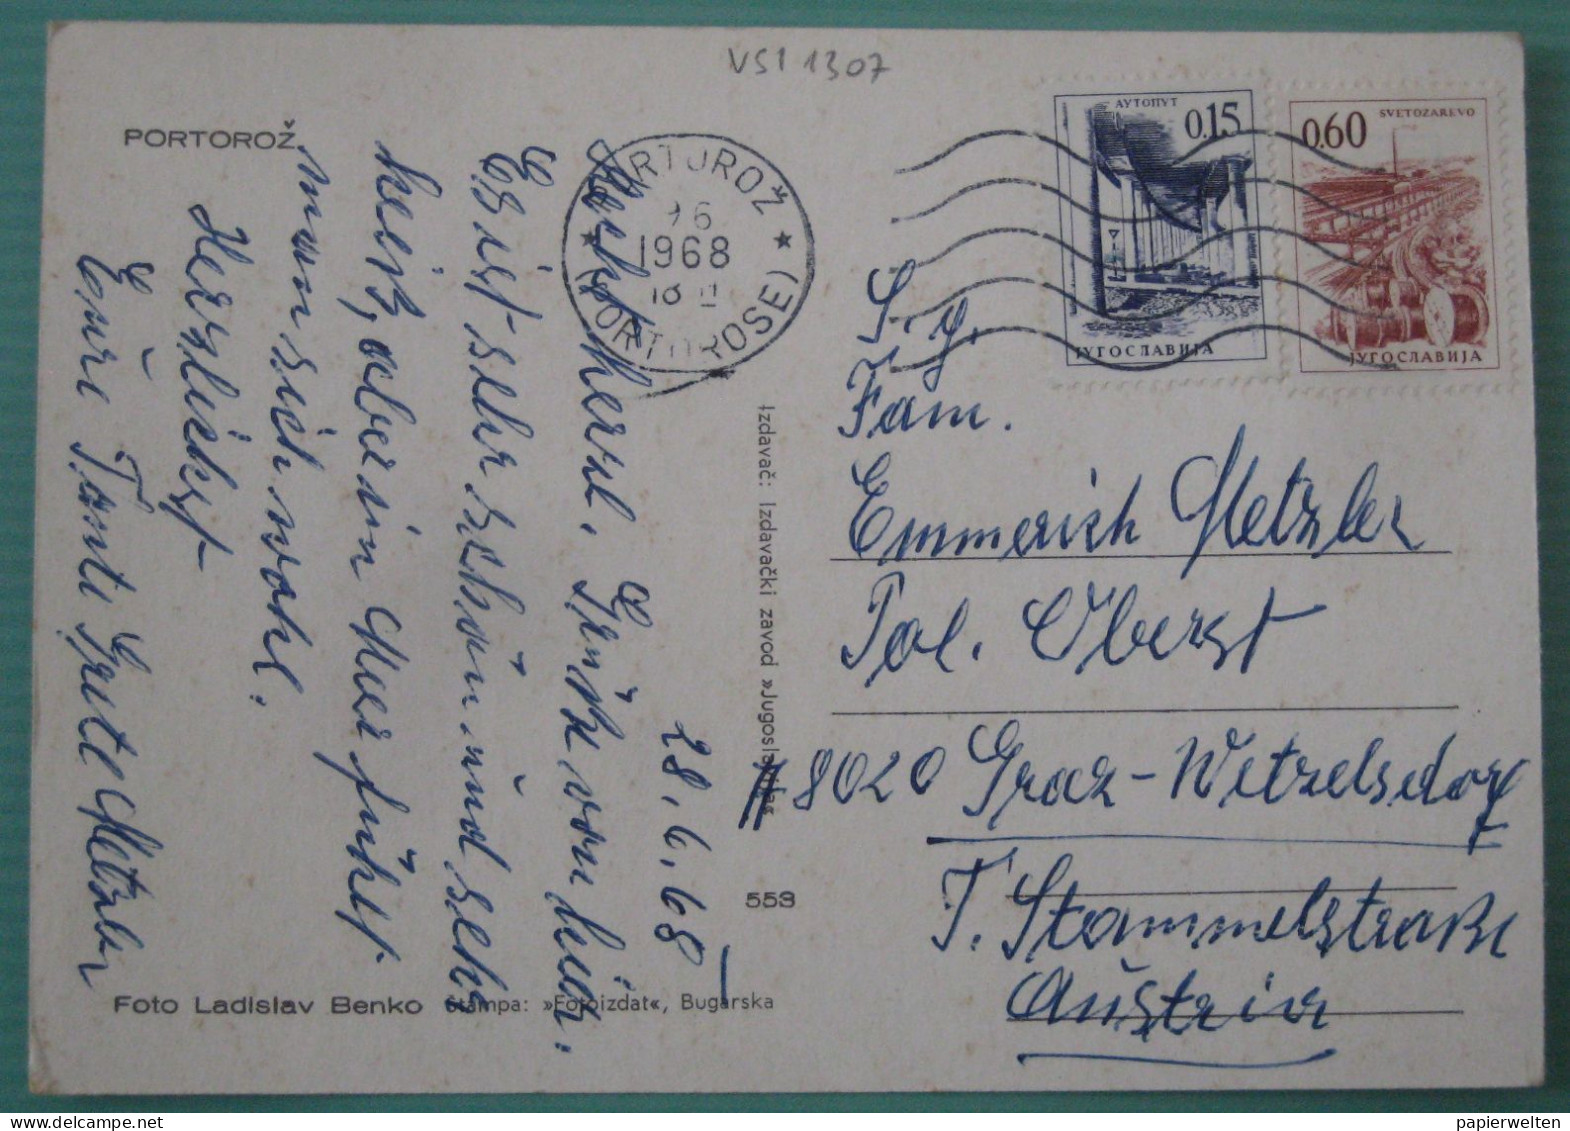 VSI 1307
PORTOROŽ
28.6.68
Recht herzl. Grüße von hier.
Es ist sehr schön und sehr
heiß, aber im Meer fühlt
man sich wohl.
Herzlichst
Eure Tante Grete Metzler
PORTOROŽ
1968
18
(PORTOROSE)
АУТОПУТ
0.15
ЈУГОСЛАВИЈА
SVETOZAREVO
0.60
ЈУГОСЛАВИЈА
S. g.
Fam.
Emmerich Metzler
Pol. Oberst
8020 Graz-Wetzelsdorf
Stammelstraße
Austria
Izdavač: Izdavački zavod »Jugoslavija«
553
Foto Ladislav Benko Štampa: »Fotoizdat«, Bugarska
papierwelten